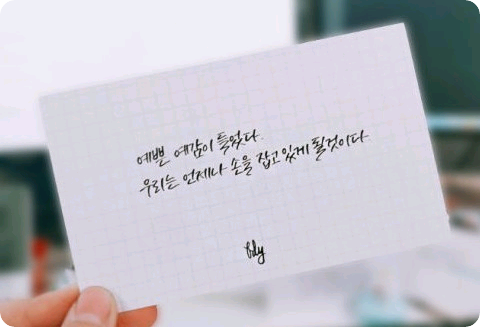 예쁜 예감이 들었다.
우리는 언제나 손을 잡고 있게 될 것이다